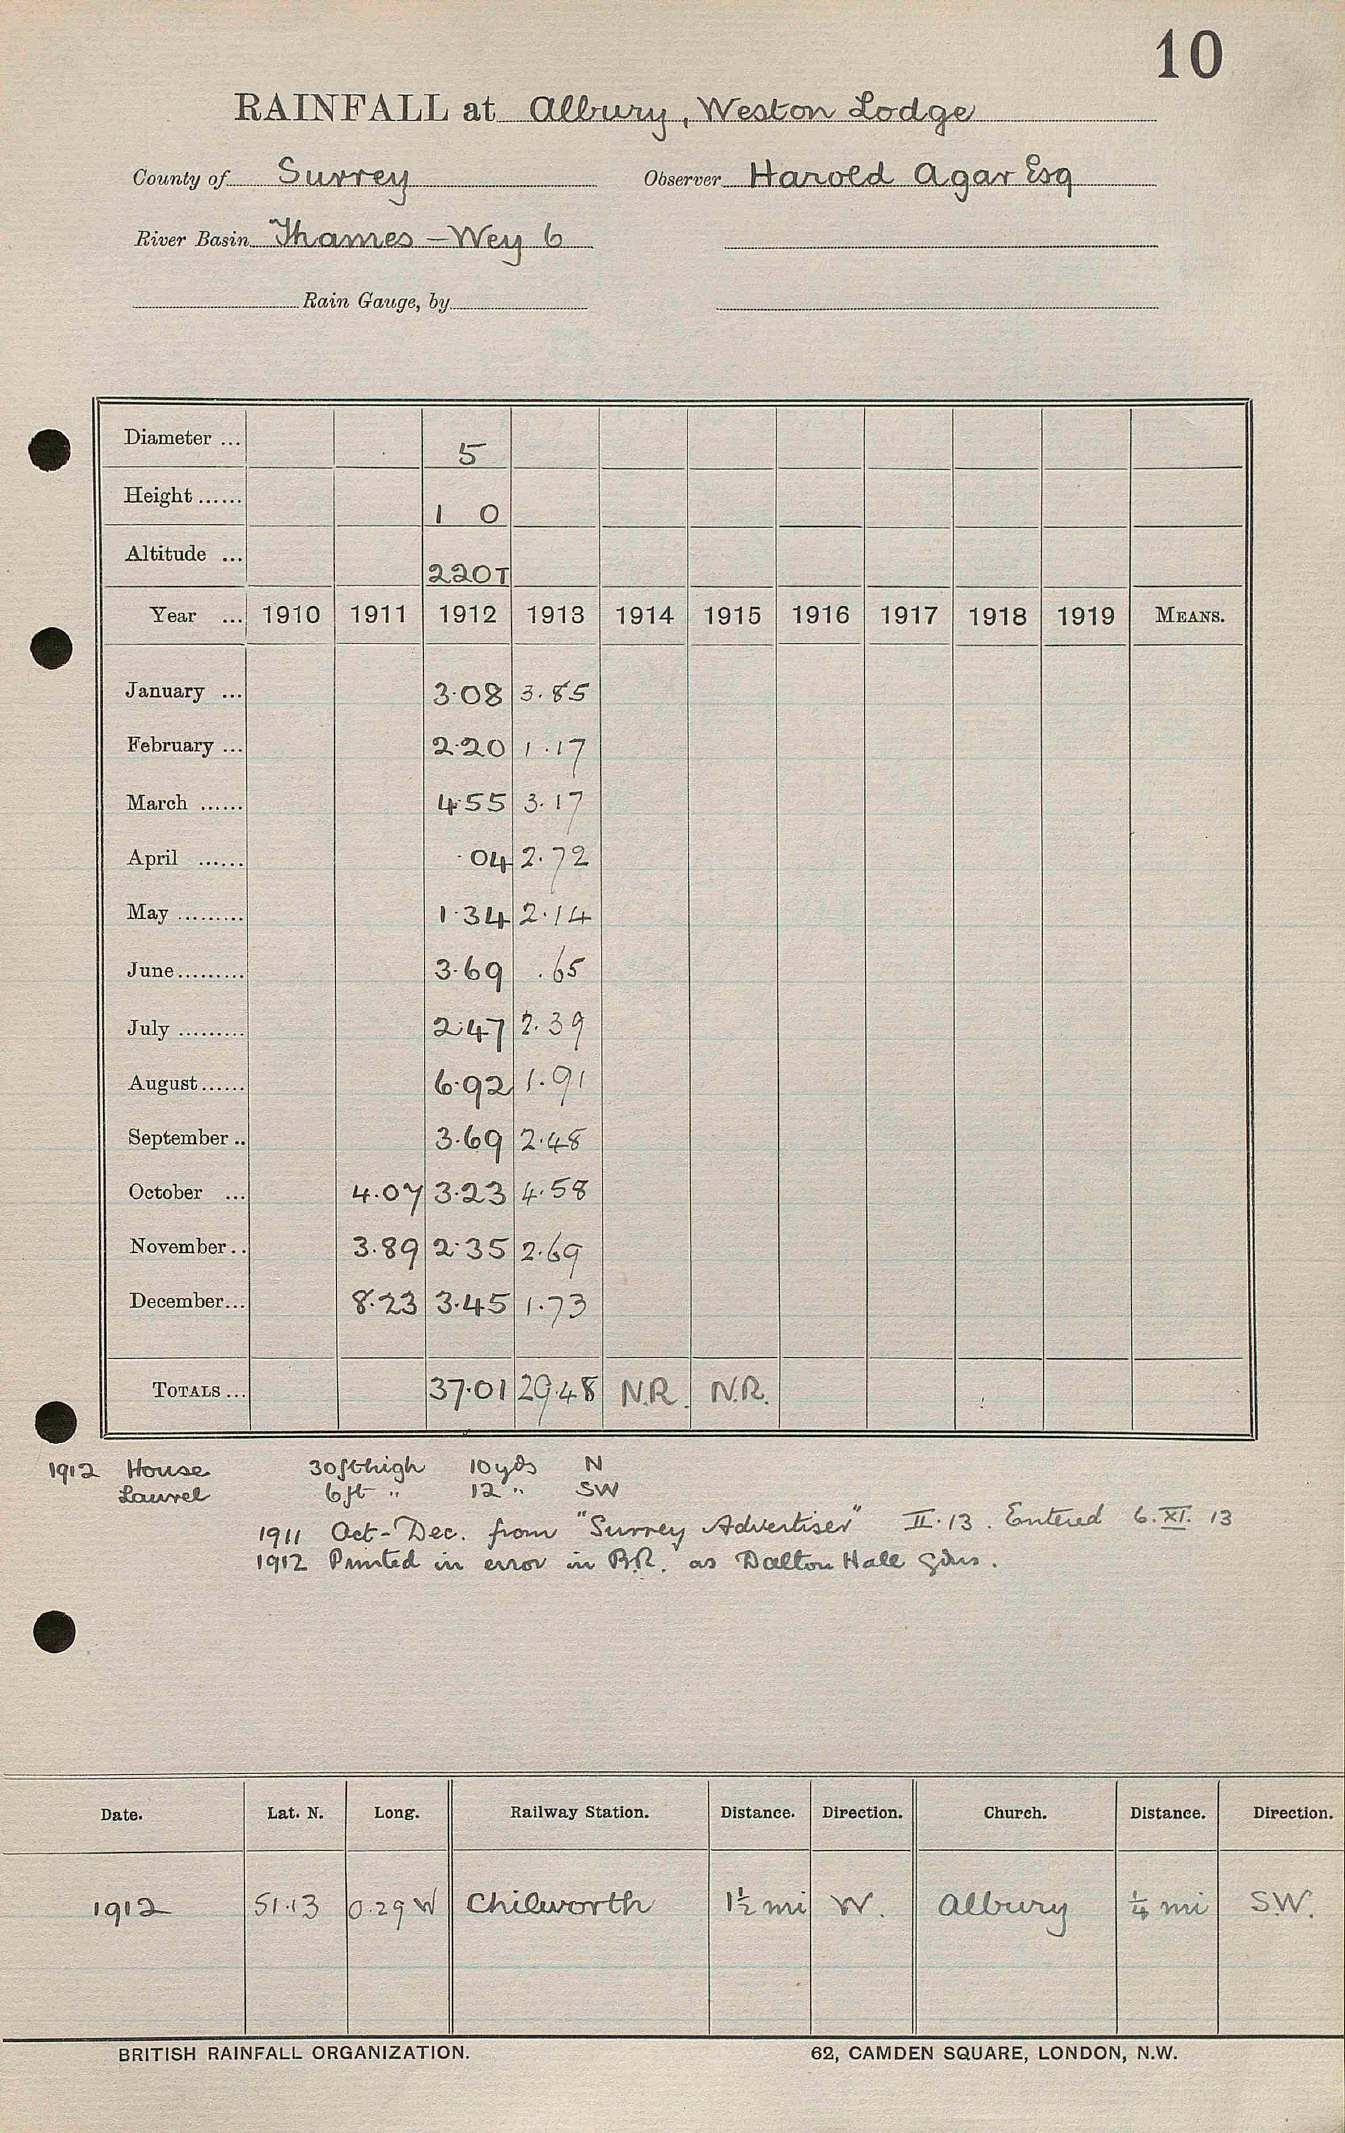 10
RAINFALL at Albury, Weston Lodge
County of Surrey Observer Harold Agar Esq
River Basin Thames – Wey 6
Rain Gauge, by
Diameter ... 5
Height ...... 1 0
Altitude ... 220T
Year ... 1910 1911 1912 1913 1914 1915 1916 1917 1918 1919 MEANS.
January ... 3.08 3.85
February ... 2.20 1.17
March ...... 4.55 3.17
April ...... .04 2.72
May ......... 1.34 2.14
June ......... 3.69 .65
July ......... 2.47 2.39
August ...... 6.92 1.91
September .. 3.69 2.48
October ... 4.07 3.23 4.58
November .. 3.89 2.35 2.69
December ... 8.23 3.45 1.73
TOTALS ... 37.01 29.48 N.R. N.R.
1912 House 30ft high 10yds N
Laurel 6ft " 12 " SW
1911 Oct-Dec. from "Surrey Advertiser" II.13. Entered 6.XI.13
1912 Printed in error in B.R. as Dalton Hall Gdns.
Date. Lat. N. Long. Railway Station. Distance. Direction. Church. Distance. Direction.
1912 51.13 0.29 W Chilworth 1½ mi W. Albury ¼ mi S.W.
BRITISH RAINFALL ORGANIZATION. 62, CAMDEN SQUARE, LONDON, N.W.